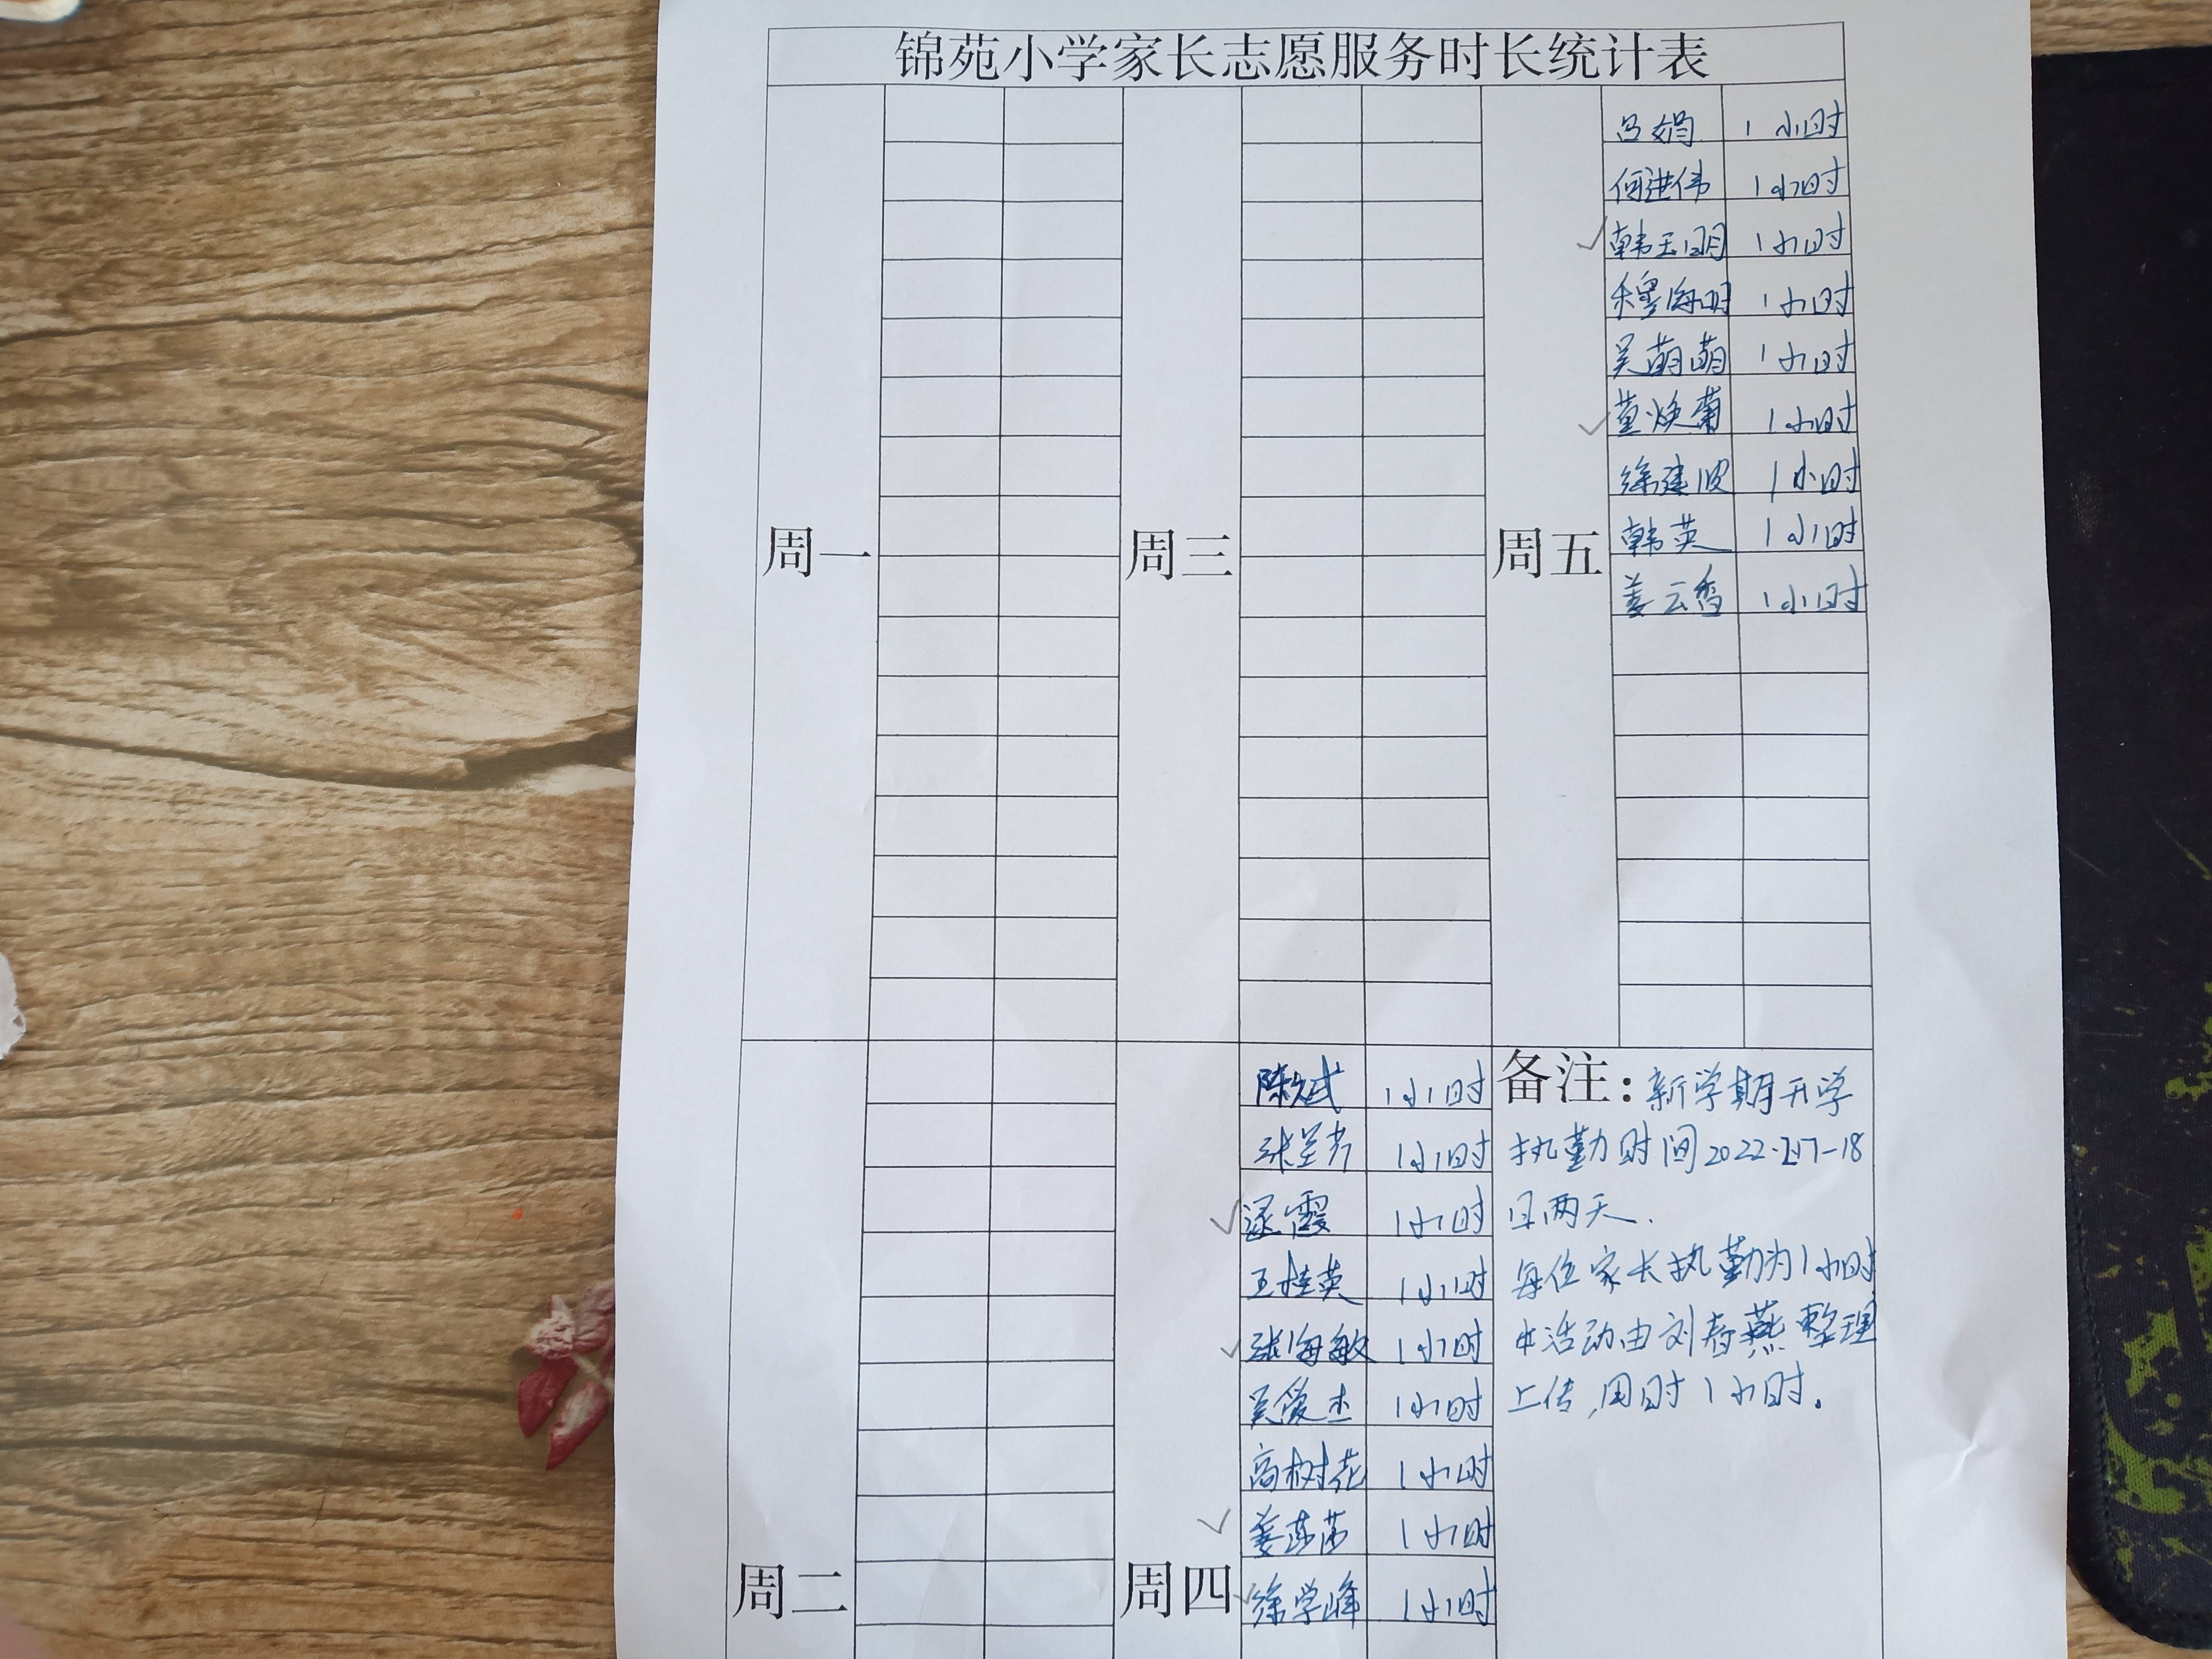 锦苑小学家长志愿服务时长统计表
周一
周三
周五
吕娟 1小时
何进伟 1小时
韩玉明 1小时
穆海明 1小时
吴萌萌 1小时
董焕菊 1小时
徐建波 1小时
韩英 1小时
姜云香 1小时
周二
周四
陈斌 1小时
张芳 1小时
逯霞 1小时
王桂英 1小时
张海敏 1小时
吴俊杰 1小时
高树花 1小时
姜莎莎 1小时
徐学峰 1小时
备注：新学期开学
执勤时间2022.2.17-18
日两天.
每位家长执勤为1小时
本活动由刘春燕整理
上传,用时1小时.